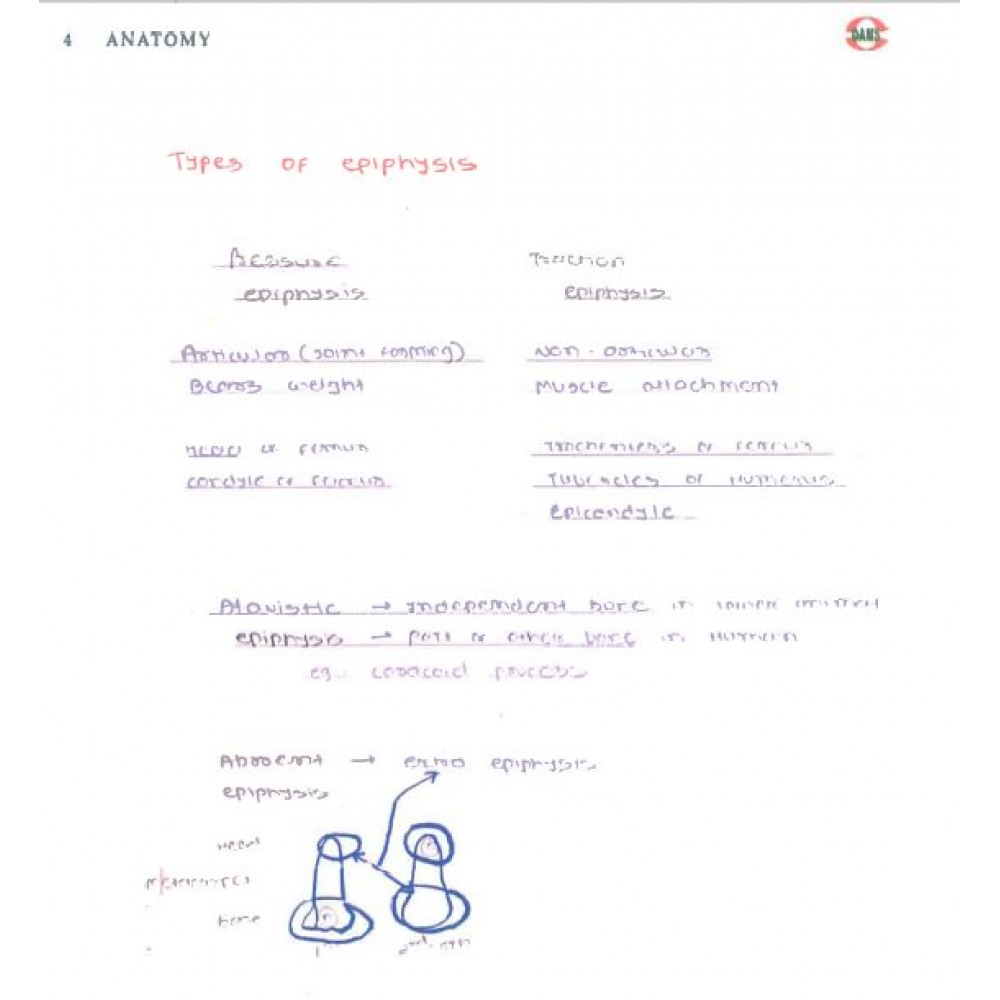 4 ANATOMY
DAMS
Types of epiphysis
Pressure Traction
epiphysis epiphysis
Articular (joint forming) Non-articular
Bears weight Muscle attachment
Head of femur Trochanters of femur
condyle of femur Tubercles of Humerus
Epicondyle
Atavistic → independent bone in lower animal
epiphysis → part of other bone in Human
eg. coracoid process
Aberrant → extra epiphysis
epiphysis
Head
base
1st 2nd